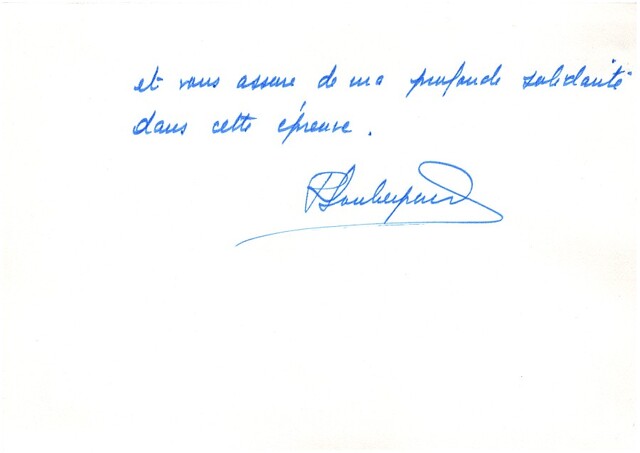 et vous assure de ma profonde solidarité
dans cette épreuve.